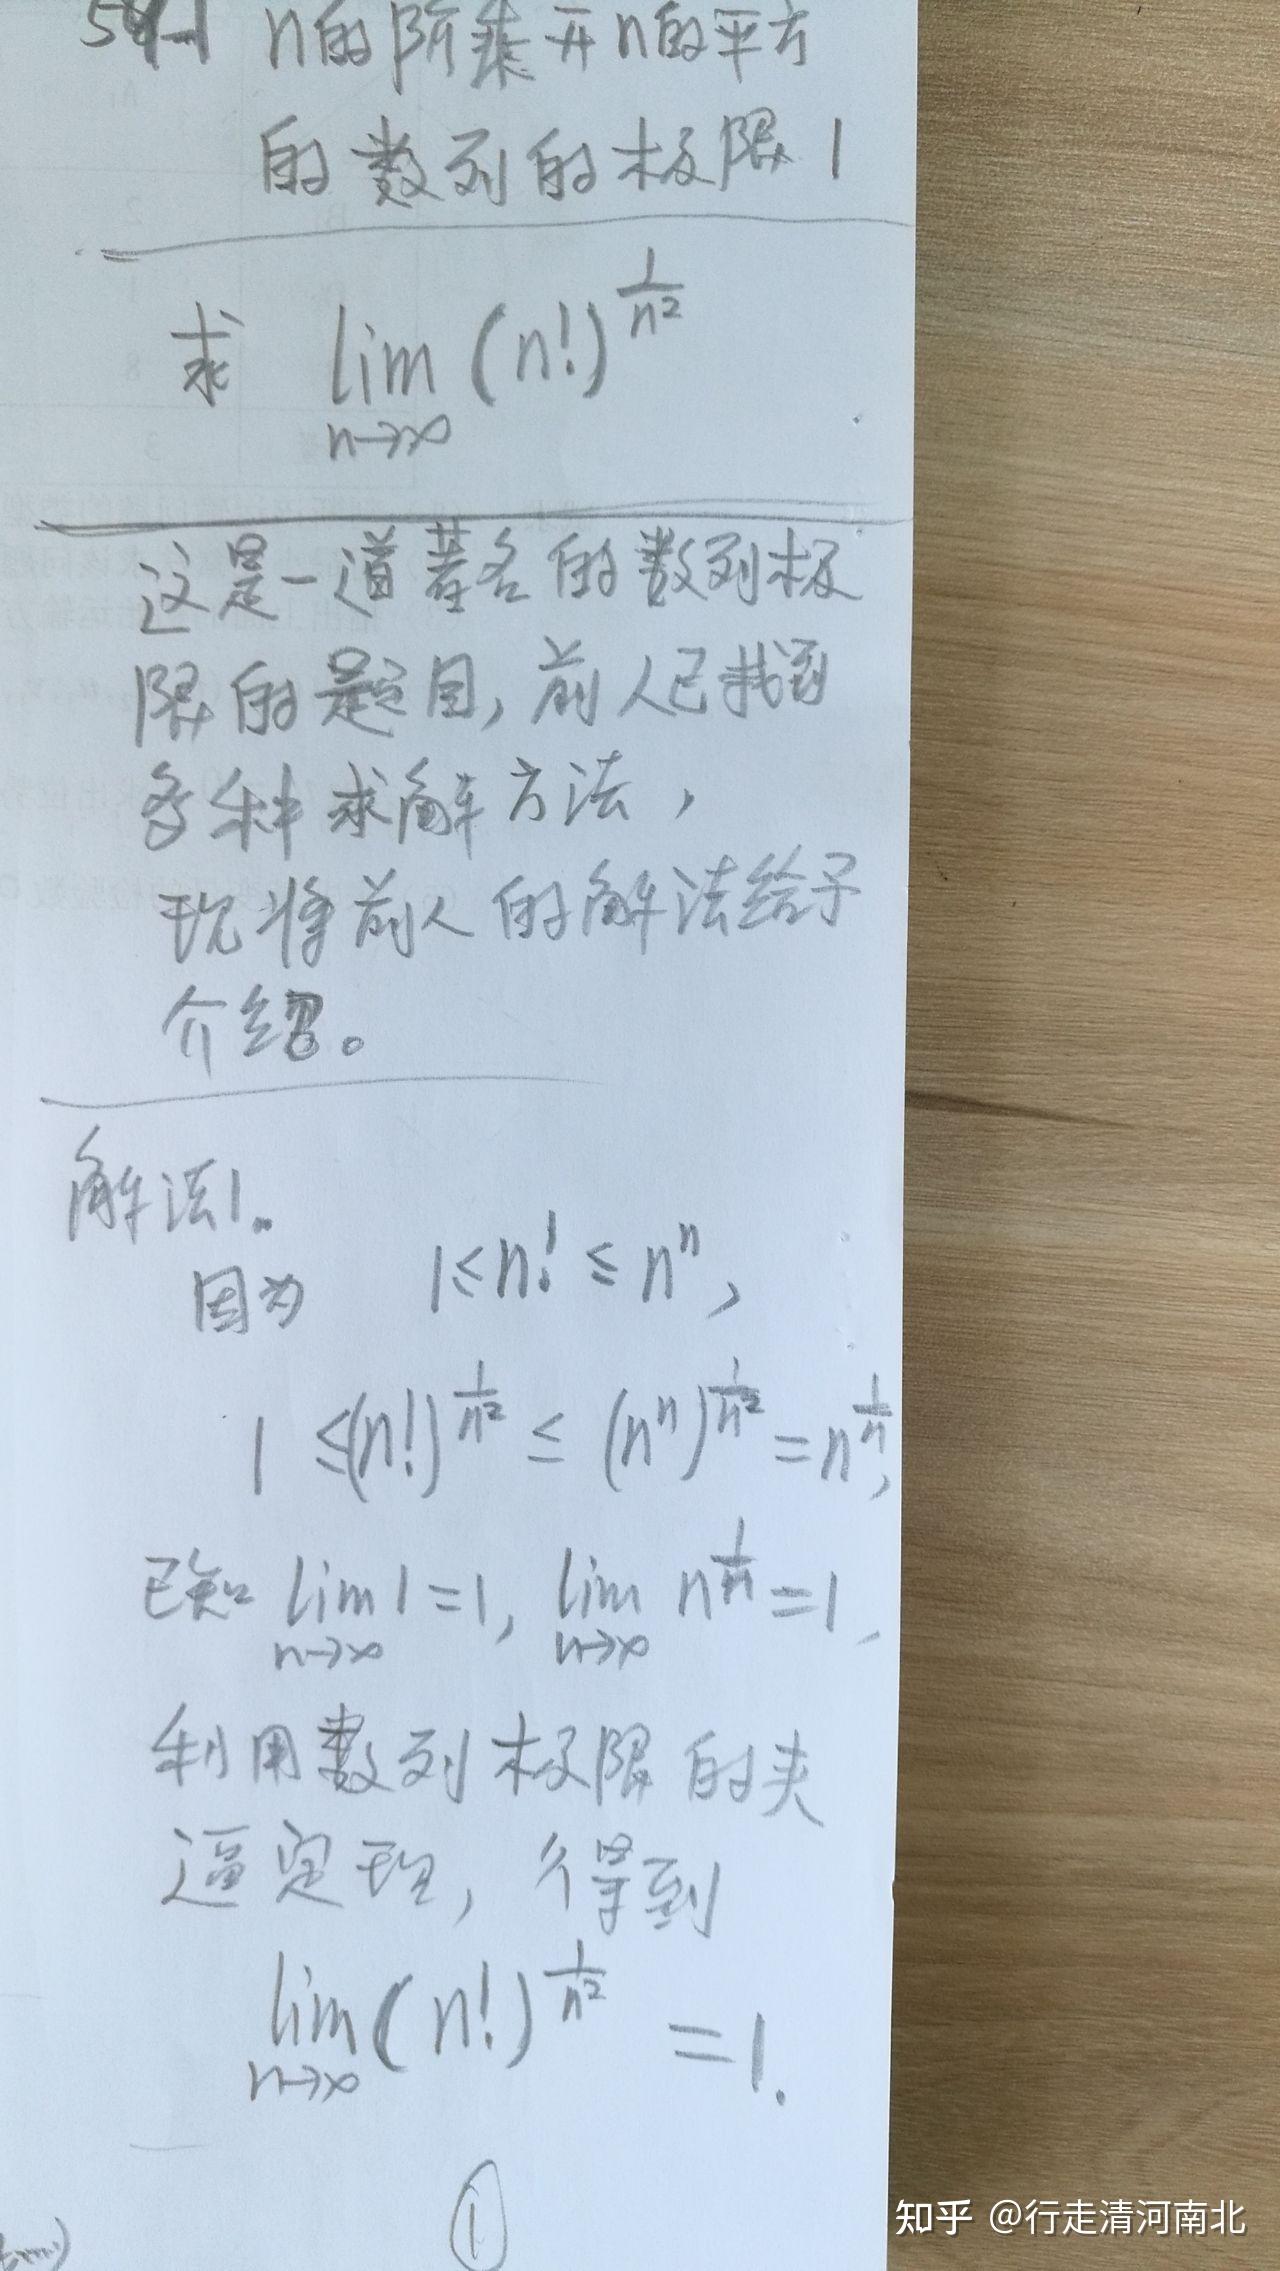 n的阶乘开n的平方
的数列的极限1
求 lim (n!)^{1/n²}
n→∞
这是一道著名的数列极
限的题目,前人已找到
多种求解方法,
现将前人的解法给予
介绍。
解法1。
因为 1≤n!≤nⁿ,
1≤(n!)^{1/n²}≤(nⁿ)^{1/n²}=n^{1/n},
已知 lim 1=1, lim n^{1/n}=1,
n→∞ n→∞
利用数列极限的夹
逼定理,得到
lim (n!)^{1/n²}=1.
n→∞
①
知乎 @行走清河南北